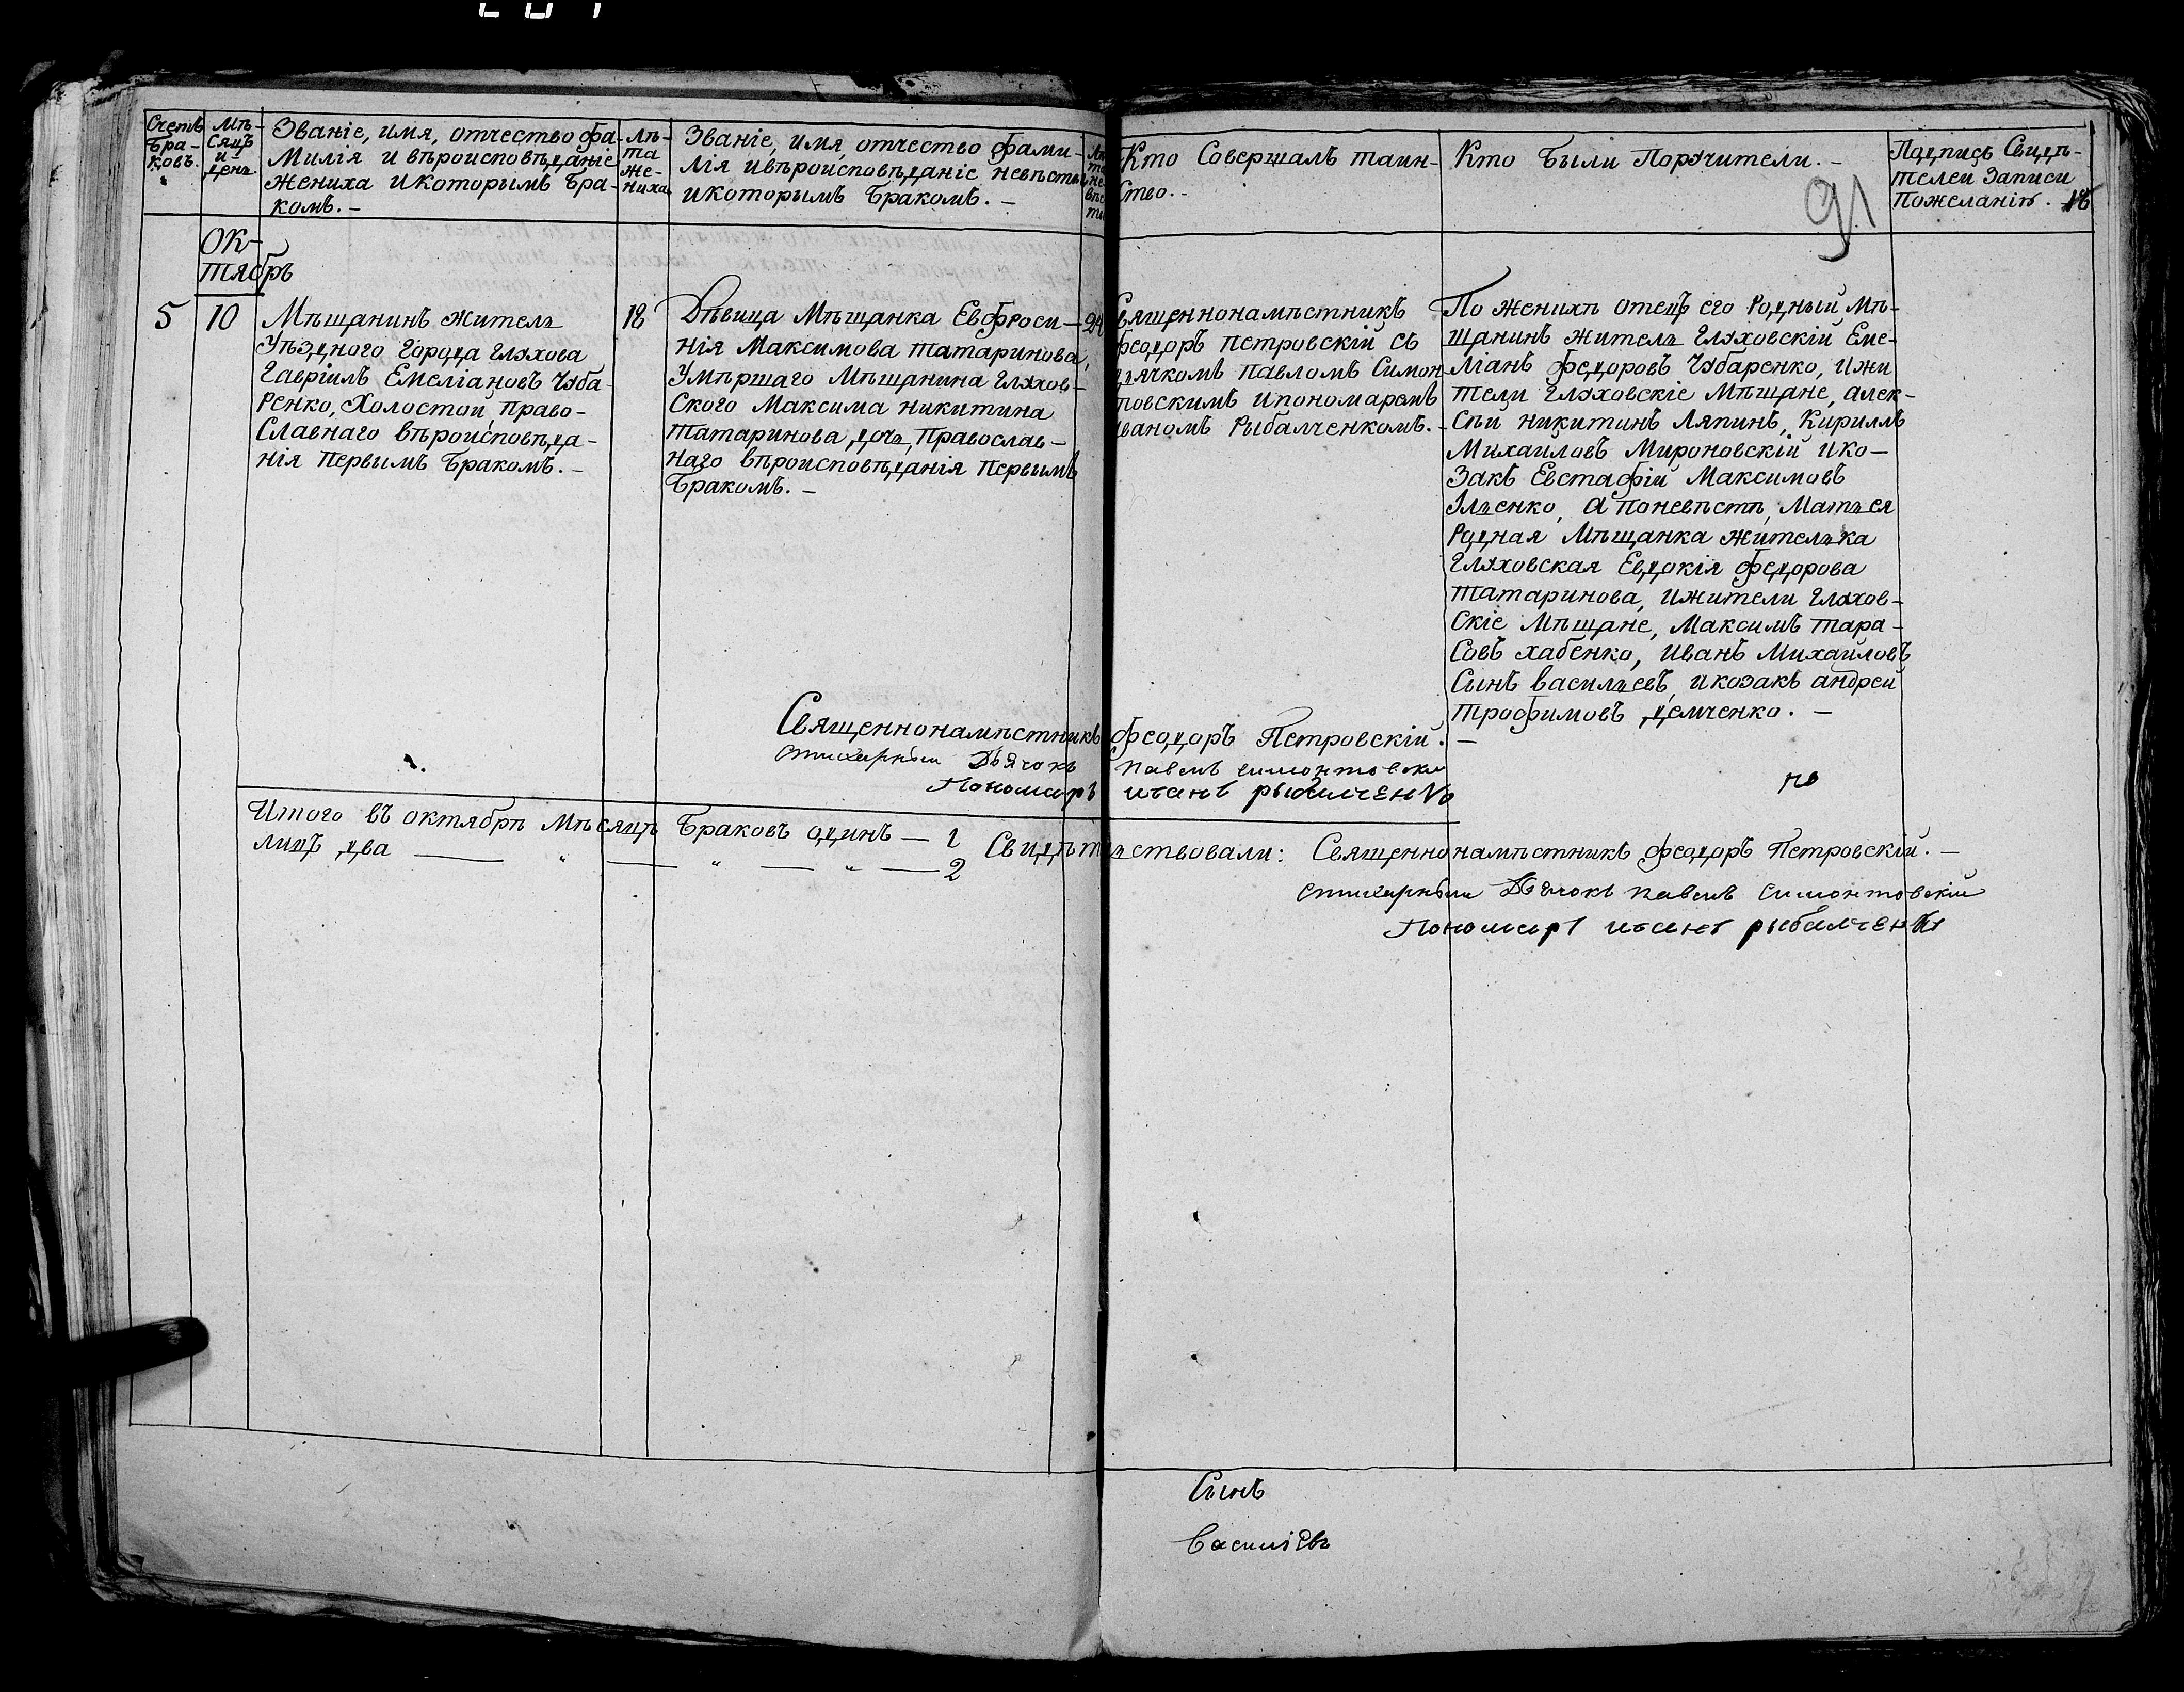 Счетъ бра- ковъ.
Мѣ- сяцъ и день
Званіе, имя, отчество фа-
милія и вѣроисповѣданіе
жениха и которымъ бра-
комъ. —
Лѣ- та же- ниха
Званіе, имя, отчество фами-
лія и вѣроисповѣданіе невѣсты
и которымъ бракомъ. —
Кто совершалъ таин-
ство. -
Кто были поручители. -
Подпись свидѣ-
телей записи
по желанію.
91
18
Ок-
тябрь
5
10
Мѣщанинъ житель
уѣзднаго города Глухова
Гавріилъ Емеліановъ Чуба-
ренко, холостой, право-
славнаго вѣроисповѣда-
нія первымъ бракомъ. —
18
Дѣвица мѣщанка Евфроси-
нія Максимова Татаринова,
умѣршаго мѣщанина Глухов-
ского Максима Никитина
Татаринова дочь, православ-
наго вѣроисповѣданія первымъ
бракомъ. —
священнонамѣстникъ
Феодоръ Петровскій съ
дьячкомъ Павломъ Симон-
товскимъ и пономаремъ
Иваномъ Рыбалченкомъ. -
По женихѣ отецъ его родный мѣ-
щанинъ житель Глуховскій Еме-
ліанъ Федоровъ Чубаренко, и жи
тели Глуховскіе мѣщане, Алек-
сѣй Никитинъ Ляпинъ, Кириллъ
Михайловъ Мироновскій и ко-
закъ Евстафій Максимовъ
Ільенко, а по невѣстѣ, мать ея
родная мѣщанка жителька
Глуховская Евдокія Федорова
Татаринова, и жители Глухов-
скіе мѣщане, Максимъ Тара-
совъ Хабенко, Иванъ Михайловъ
сынъ Васильевъ, и козакъ Андрей
Трофимовъ Демченко. —
Священнонамѣстникъ Феодоръ Петровскій. —
Стихарный Дьячокъ Павелъ Симонтовскій
Пономарь Иванъ Рыбалченко
Итого въ октябрѣ мѣсяцѣ браковъ одинъ — 1
лицъ два — „ — „ — „ — 2
Свидѣтельствовали: Священнонамѣстникъ Феодоръ Петровскій. —
Стихарный Дьячокъ Павелъ Симонтовскій
Пономарь Иванъ Рыбалченко
Сынъ
Василіевъ